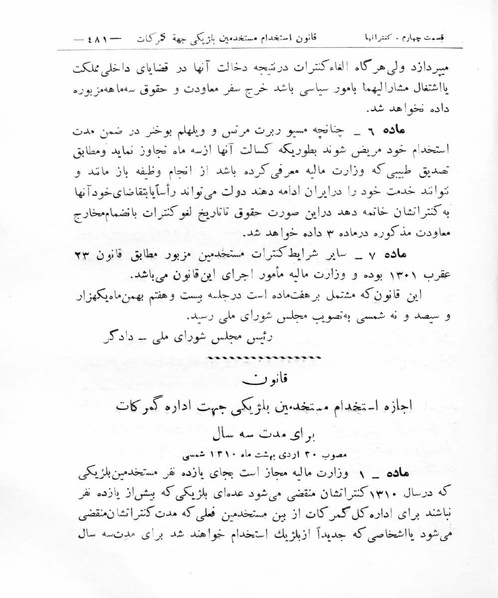 قسمت چهارم - کنتراتها قانون استخدام مستخدمین بلژیکی جهة گمرکات —۴۸۱—
میپردازد ولی هرگاه الغاء کنترات درنتیجه دخالت آنها در قضایای داخلی مملکت
یا اشتغال مشارالیهما بامور سیاسی باشد خرج سفر معاودت و حقوق سه‌ماهه مزبوره
داده نخواهد شد.
ماده ۶ ـ چنانچه مسیو ربرت مرتس و ویلهلم بوخنر در ضمن مدت
استخدام خود مریض شوند بطوریکه کسالت آنها از سه ماه تجاوز نماید ومطابق
تصدیق طبیبی که وزارت مالیه معرفی کرده باشد از انجام وظیفه باز مانند و
نتوانند خدمت خود را درایران ادامه دهند دولت می‌تواند رأساً یا بتقاضای خود آنها
به کنتراتشان خاتمه دهد دراین صورت حقوق تا تاریخ لغو کنترات بانضمام مخارج
معاودت مذکوره درماده ۳ داده خواهد شد.
ماده ۷ ـ سایر شرایط کنترات مستخدمین مزبور مطابق قانون ۲۳
عقرب ۱۳۰۱ بوده و وزارت مالیه مأمور اجرای این قانون می‌باشد.
این قانون که مشتمل بر هفت ماده است درجلسه بیست وهفتم بهمن ماه یکهزار
و سیصد و نه شمسی به‌تصویب مجلس شورای ملی رسید.
رئیس مجلس شورای ملی ـ دادگر
قانون
اجازه استخدام مستخدمین بلژیکی جهت اداره گمرکات
برای مدت سه سال
مصوب ۲۰ اردی بهشت ماه ۱۳۱۰ شمسی
ماده ـ ۱ وزارت مالیه مجاز است بجای یازده نفر مستخدمین بلژیکی
که درسال ۱۳۱۰ کنتراتشان منقضی می‌شود عده‌ای بلژیکی که بیش از یازده نفر
نباشند برای اداره کل گمرکات از بین مستخدمین فعلی که مدت کنتراتشان منقضی
می‌شود یا اشخاصی که جدیداً از بلژیك استخدام خواهند شد برای مدت سه سال